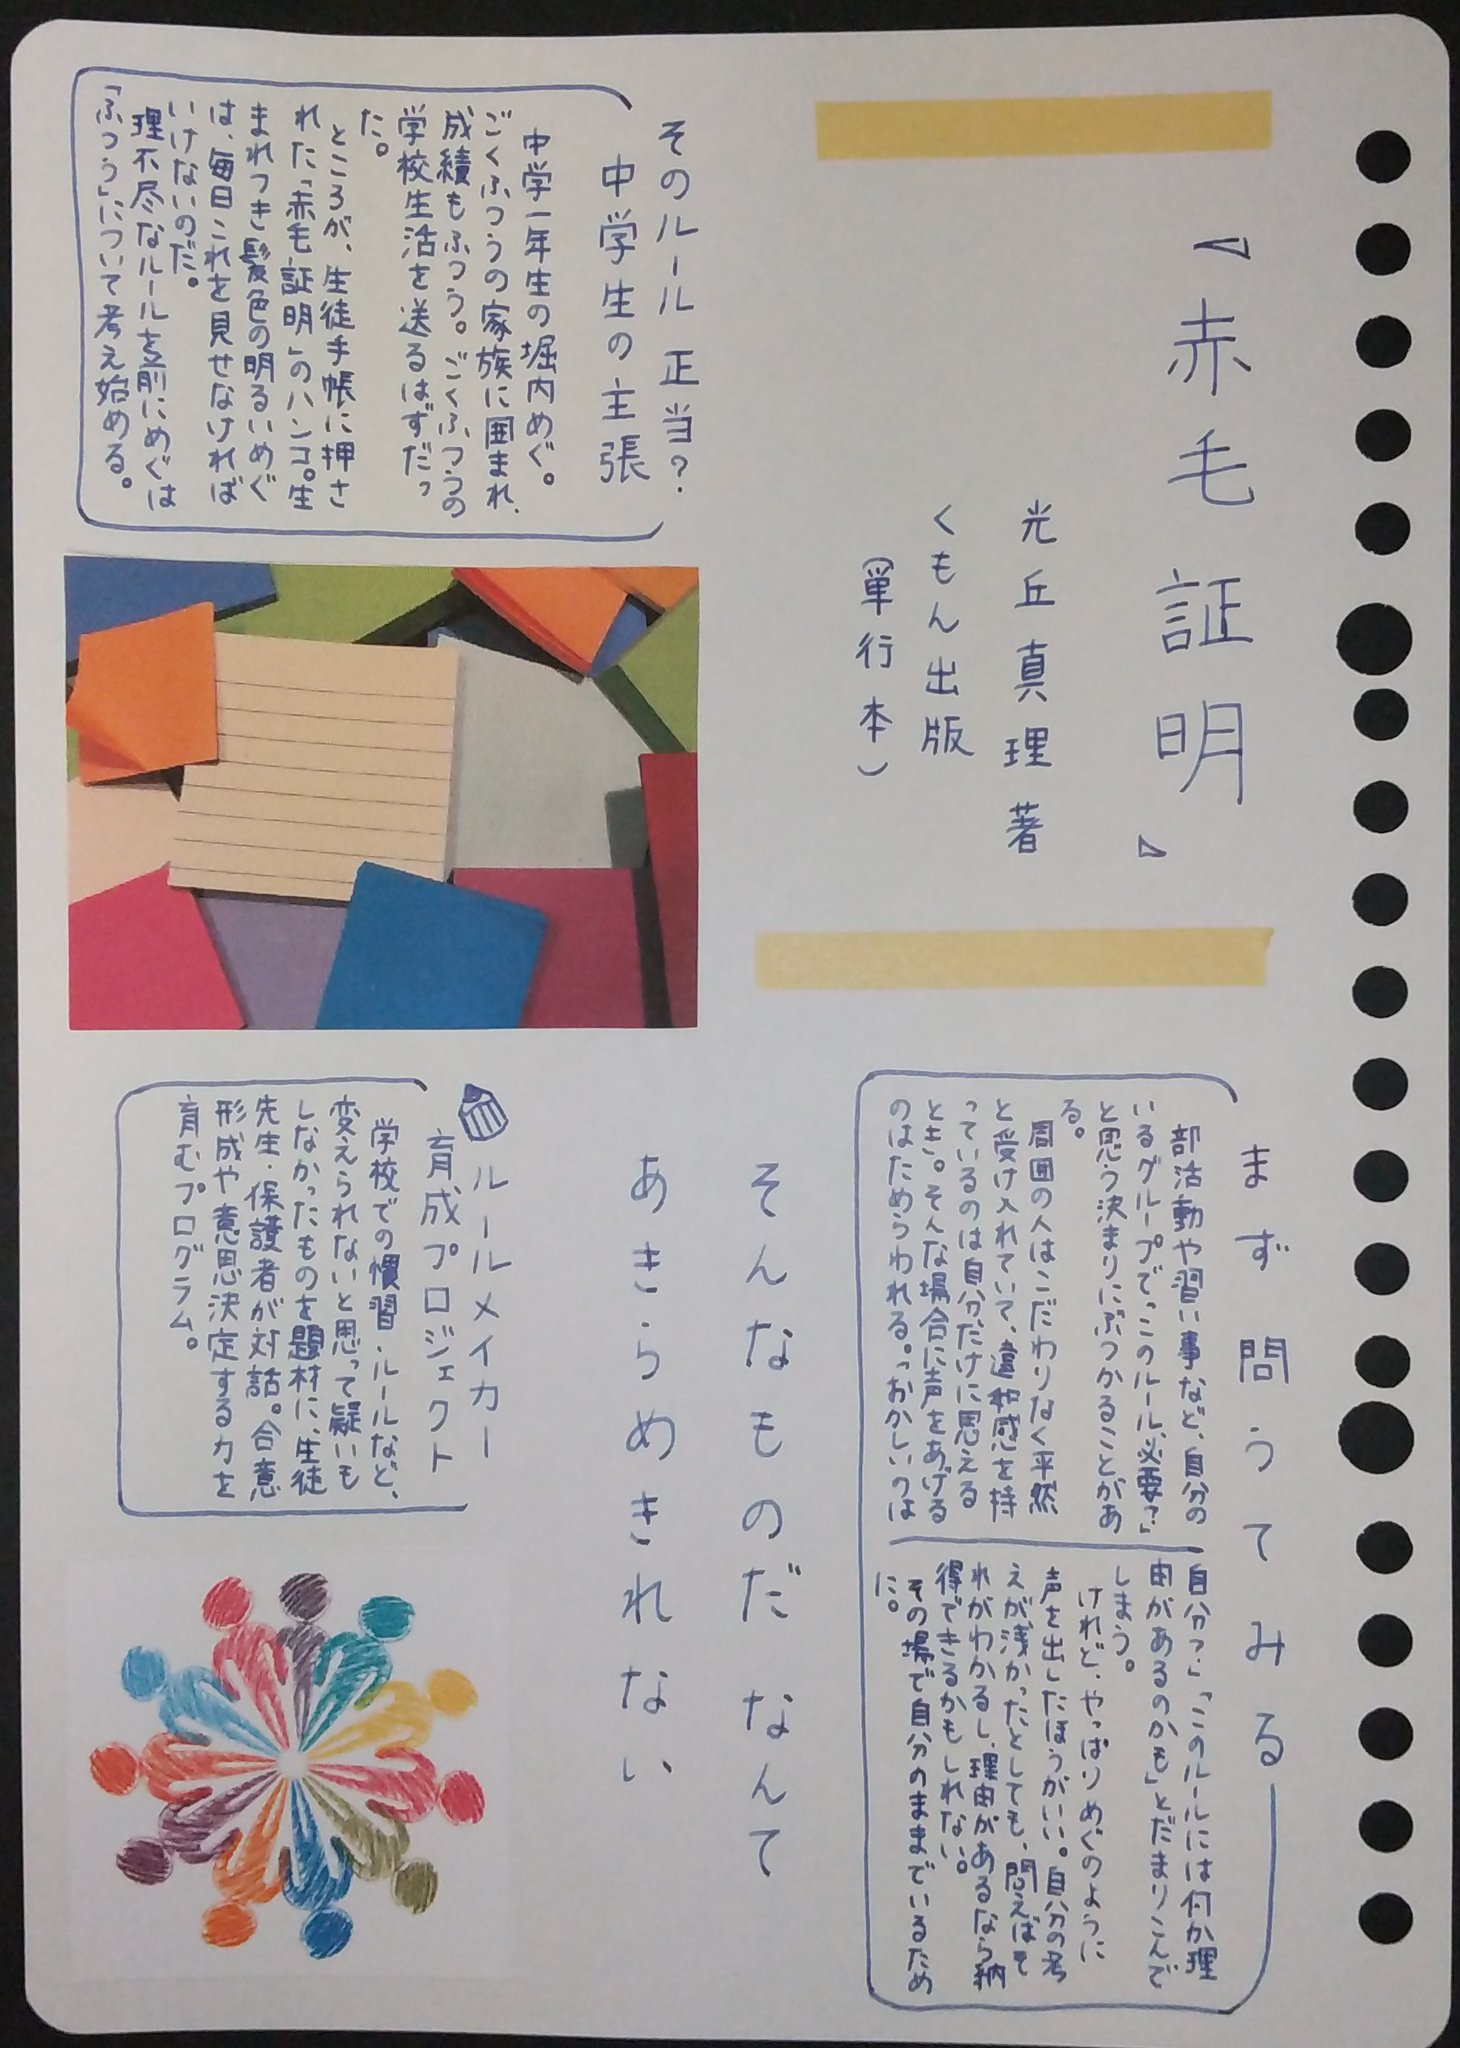 『赤毛証明』
光丘真理 著
くもん出版
(単行本)
そのルール 正当?
中学生の主張
中学一年生の堀内めぐ。
ごくふつうの家族に囲まれ、
成績もふつう。ごくふつうの
学校生活を送るはずだっ
た。
ところが、生徒手帳に押さ
れた「赤毛証明」のハンコ。生
まれつき髪色の明るいめぐ
は、毎日これを見せなければ
いけないのだ。
理不尽なルールを前にめぐは
「ふつう」について考え始める。
まず問うてみる
部活動や習い事など、自分の
いるグループで「このルール、必要?」
と思う決まりにぶつかることがあ
る。
周囲の人はこだわりなく平然
と受け入れていて、違和感を持
っているのは自分だけに思える
とき。そんな場合に声をあげる
のはためらわれる。「おかしいのは
自分?」「このルールには何か理
由があるのかも」とだまりこんで
しまう。
けれど、やっぱりめぐのように
声を出したほうがいい。自分の考
えが浅かったとしても、問えばそ
れがわかるし、理由があるなら納
得できるかもしれない。
その場で自分のままでいるため
に。
そんなものだ なんて
あきらめきれない
ルールメイカー
育成プロジェクト
学校での慣習・ルールなど、
変えられないと思って疑いも
しなかったものを題材に、生徒
先生・保護者が対話。合意
形成や意思決定する力を
育むプログラム。